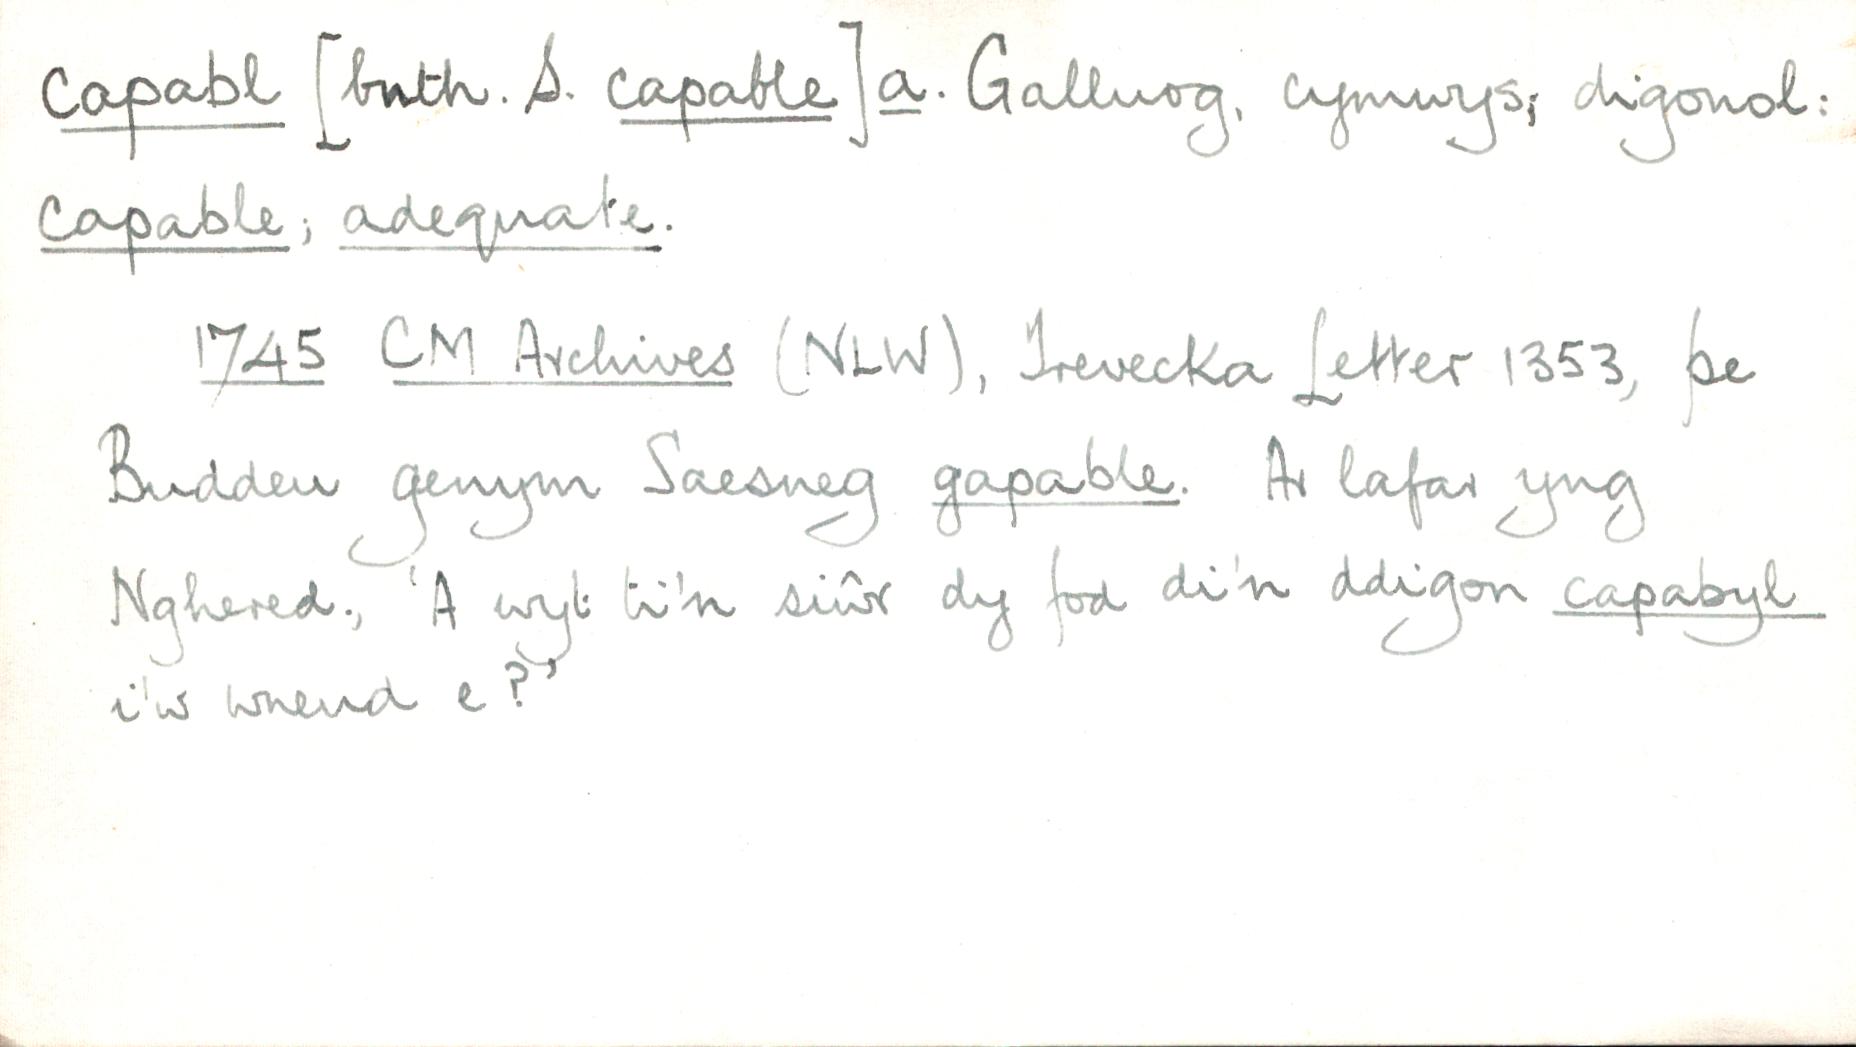 capabl [bnth. S. capable] a. Galluog, cymwys; digonol:
capable; adequate.
1745 CM Archives (NLW), Trevecka Letter 1353, pe
Buddeu genym Saesneg gapable. Ar lafar yng
Nghered., 'A wyt ti'n siûr dy fod di'n ddigon capabyl
i'w wneud e?'